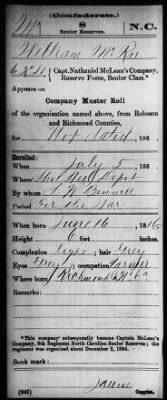 (Confederate.)
Mc 8 N.C.
Senior Reserves.
William McRee
Capt. Nathaniel McLean's Company,
Reserve Force, Senior Class.*
Appears on
Company Muster Roll
of the organization named above, from Robeson
and Richmond Counties,
for Not dated, 186
Enrolled:
When July 5, 186
Where Depot
By whom
Period For the War
When born June 16, 1816
Height 6 feet inches
Complexion hair Grey
Eyes Gray; occupation Farmer
Where born Richmond Co N.C.
*This company subsequently became Captain McLean's
Company, 8th Regiment North Carolina Senior Reserves; the
regiment was organized about December 2, 1864.
Book mark:
(642) Copyist.